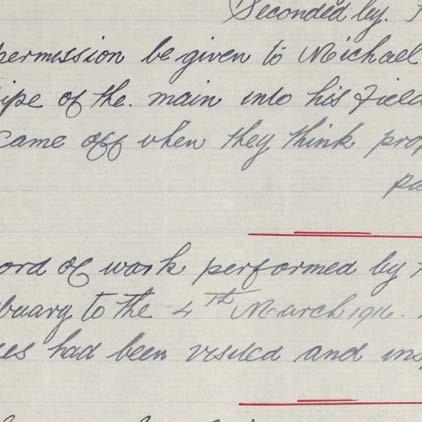 Seconded by.
permission be given to Michael
pipe of the. main into his field
came off when they think prop
pa
ord of work performed by
bruary to the 4th March 1916.
es had been visited and ins